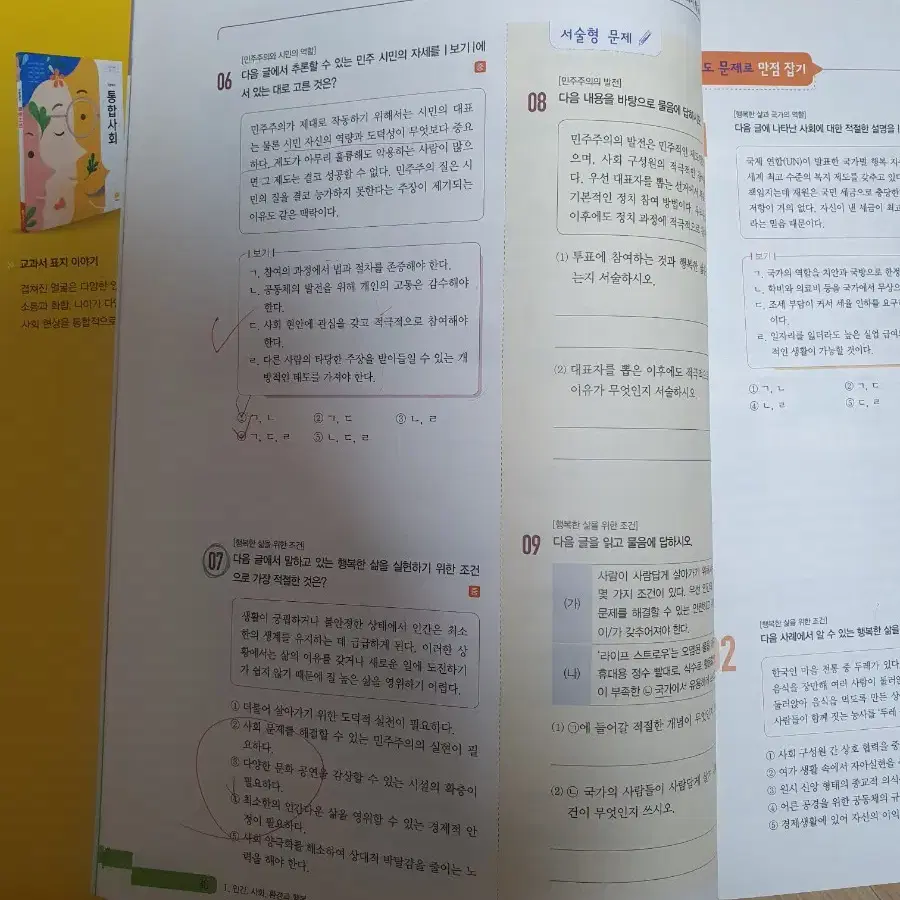 통합사회
교과서 표지 이야기
겹쳐진 얼굴은 다양한
소통과 화합, 나이가 다
사회 현상을 통합적으로
[민주주의와 시민의 역할]
06 다음 글에서 추론할 수 있는 민주 시민의 자세를 |보기|에
서 있는 대로 고른 것은?
중
민주주의가 제대로 작동하기 위해서는 시민의 대표
는 물론 시민 자신의 역량과 도덕성이 무엇보다 중요
하다. 제도가 아무리 훌륭해도 악용하는 사람이 많으
면 그 제도는 결코 성공할 수 없다. 민주주의 질은 시
민의 질을 결코 능가하지 못한다는 주장이 제기되는
이유도 같은 맥락이다.
|보기|
ㄱ. 참여의 과정에서 법과 절차를 존중해야 한다.
ㄴ. 공동체의 발전을 위해 개인의 고통은 감수해야
한다.
ㄷ. 사회 현안에 관심을 갖고 적극적으로 참여해야
한다.
ㄹ. 다른 사람의 타당한 주장을 받아들일 수 있는 개
방적인 태도를 가져야 한다.
① ㄱ, ㄴ ② ㄱ, ㄷ ③ ㄴ, ㄹ
④ ㄱ, ㄷ, ㄹ ⑤ ㄴ, ㄷ, ㄹ
[행복한 삶을 위한 조건]
07 다음 글에서 말하고 있는 행복한 삶을 실현하기 위한 조건
으로 가장 적절한 것은?
중
생활이 궁핍하거나 불안정한 상태에서 인간은 최소
한의 생계를 유지하는 데 급급하게 된다. 이러한 상
황에서는 삶의 이유를 갖거나 새로운 일에 도전하기
가 쉽지 않기 때문에 질 높은 삶을 영위하기 어렵다.
① 더불어 살아가기 위한 도덕적 실천이 필요하다.
② 사회 문제를 해결할 수 있는 민주주의의 실현이 필
요하다.
③ 다양한 문화 공연을 감상할 수 있는 시설의 확충이
필요하다.
④ 최소한의 인간다운 삶을 영위할 수 있는 경제적 안
정이 필요하다.
⑤ 사회 양극화를 해소하여 상대적 박탈감을 줄이는 노
력을 해야 한다.
Ⅰ. 인간, 사회, 환경과 행복
서술형 문제
[민주주의의 발전]
08 다음 내용을 바탕으로 물음에 답하시오.
민주주의의 발전은 민주적인
으며, 사회 구성원의 적극적인
다. 우선 대표자를 뽑는
기본적인 정치 참여 방법이다.
이후에도 정치 과정에 적극적으로
(1) 투표에 참여하는 것과 행복한
는지 서술하시오.
(2) 대표자를 뽑은 이후에도
이유가 무엇인지 서술하시오.
[행복한 삶을 위한 조건]
09 다음 글을 읽고 물음에 답하시오.
(가)
사람이 사람답게 살아가기
몇 가지 조건이 있다. 우선
문제를 해결할 수 있는
이/가 갖추어져야 한다.
(나)
'라이프 스트로우'는 오염된
휴대용 정수 빨대로, 식수로
이 부족한 ㉡ 국가에서
(1) ㉠에 들어갈 적절한 개념이
(2) ㉡ 국가의 사람들이 사람답게
건이 무엇인지 쓰시오.
도 문제로 만점 잡기
[행복한 삶과 국가의 역할]
다음 글에 나타난 사회에 대한 적절한 설명을
국제 연합(UN)이 발표한 국가별 행복
세계 최고 수준의 복지 제도를 갖추고
책임지는데 재원은 국민 세금으로
저항이 거의 없다. 자신이 낸 세금이
라는 믿음 때문이다.
|보기|
ㄱ. 국가의 역할을 치안과 국방으로
ㄴ. 학비와 의료비 등을 국가에서
ㄷ. 조세 부담이 커서 세율 인하를
이다.
ㄹ. 일자리를 잃더라도 높은 실업
적인 생활이 가능할 것이다.
① ㄱ, ㄴ ② ㄱ, ㄷ
④ ㄴ, ㄹ ⑤ ㄷ, ㄹ
[행복한 삶을 위한 조건]
2 다음 사례에서 알 수 있는 행복한 삶을
한국인 마을 전통 중 두레가 있다.
음식을 장만해 여러 사람이
둘러앉아 음식을 먹도록 만든
사람들이 함께 짓는 농사를 '두레
① 사회 구성원 간 상호 협력을
② 여가 생활 속에서 자아실현을
③ 원시 신앙 형태의 종교적
④ 어른 공경을 위한 공동체의
⑤ 경제생활에 있어 자신의